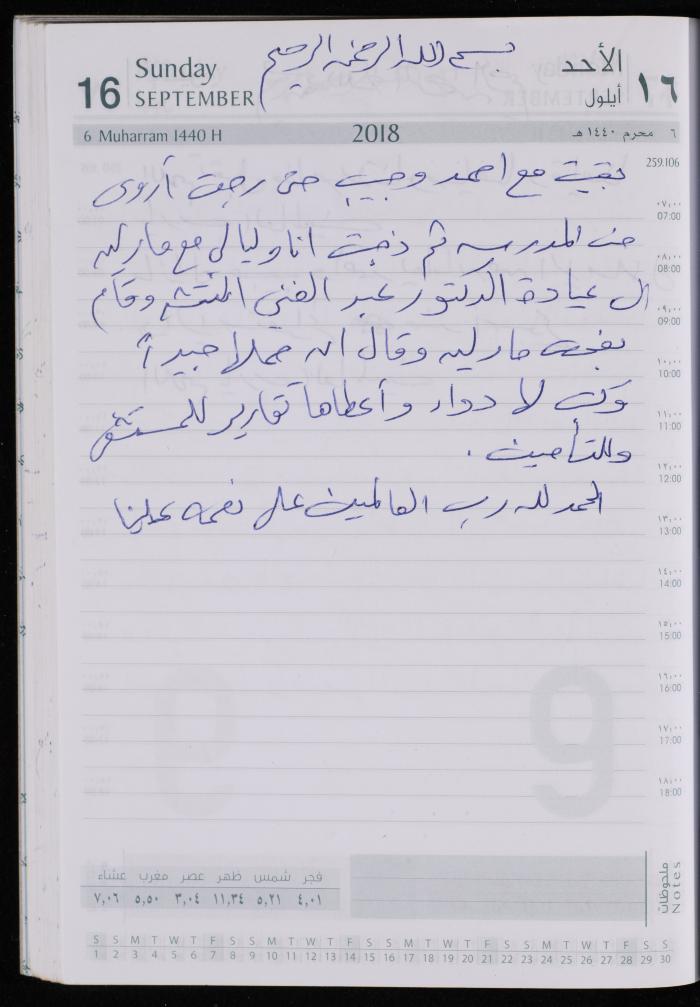 بسم الله الرحمن الرحيم
16 Sunday SEPTEMBER
الأحد أيلول ١٦
6 Muharram 1440 H 2018 ٦ محرم ١٤٤٠ هـ
259.106
بقيت مع احمد وحبيب حتى رجعت أروى
من المدرسه ثم ذهبت انا وليالي مع مارلين
الى عيادة الدكتور عبد الغني وقام
بفحص مارلين وقال ان حملا جيداً
وكتب لا دواء وأعطاها تقارير للمستشفى
وللتأمين .
الحمد لله رب العالمين على نعمه علينا
٠٧,٠٠
07:00
٠٨,٠٠
08:00
٠٩,٠٠
09:00
١٠,٠٠
10:00
١١,٠٠
11:00
١٢,٠٠
12:00
١٣,٠٠
13:00
١٤,٠٠
14:00
١٥,٠٠
15:00
١٦,٠٠
16:00
١٧,٠٠
17:00
١٨,٠٠
18:00
9
فجر شمس ظهر عصر مغرب عشاء
٤,٠١ ٥,٢١ ١١,٣٤ ٣,٠٤ ٥,٥٠ ٧,٠٦
ملحوظات
Notes
S S M T W T F S S M T W T F S S M T W T F S S M T W T F S S
1 2 3 4 5 6 7 8 9 10 11 12 13 14 15 16 17 18 19 20 21 22 23 24 25 26 27 28 29 30